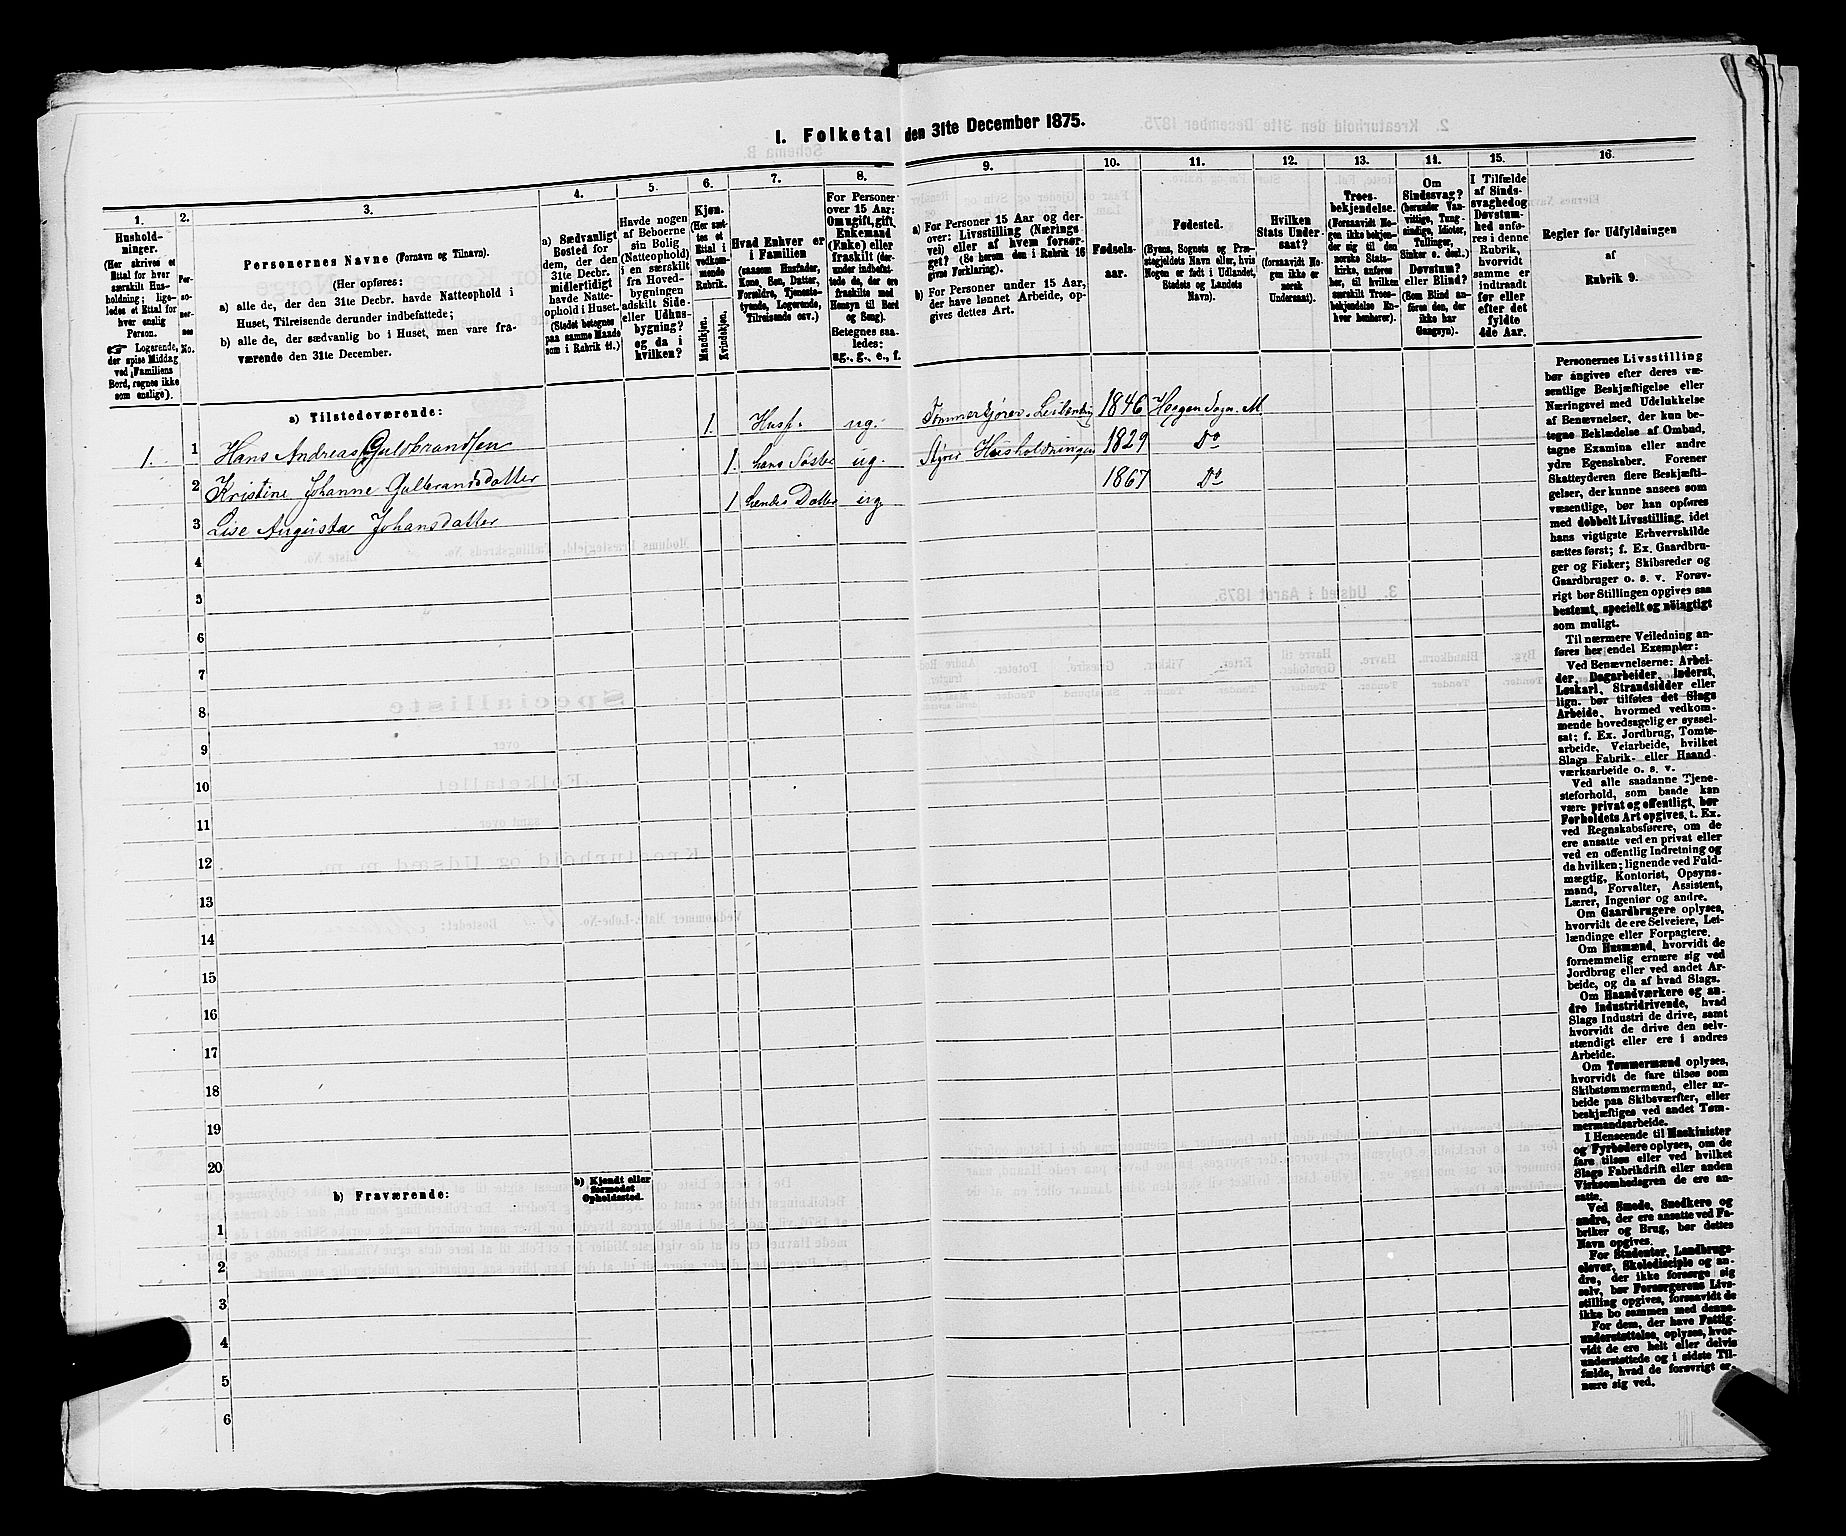 I. Folketal den 31te December 1875.
1.
Hushold-
ninger.
(Her skrives et
Ettal for hver
særskilt Hus-
holdning; lige-
ledes et Ettal for
hver enslig
Person.
☞ Logerende,
der spise Middag
ved Familiens
Bord, regnes ikke
som enslige).
2.
Per-
so-
ner-
nes
No.
3.
Personernes Navne (Fornavn og Tilnavn).
(Her opføres:
a) alle de, der den 31te Decbr. havde Natteophold i
Huset, Tilreisende derunder indbefattede;
b) alle de, der sædvanlig bo i Huset, men vare fra-
værende den 31te December.
4.
a) Sædvanligt
Bosted for
dem, der den
31te Decbr.
midlertidigt
havde Natte-
ophold i Huset.
(Stedet betegnes
paa samme Maade
som i Rubrik 11.)
5.
Havde nogen
af Beboerne
sin Bolig
(Natteophold)
i en særskilt
fra Hoved-
bygningen
adskilt Side-
eller Udhus-
bygning?
og da i
hvilken?
6.
Kjøn.
(Her sæt-
tes et
Ettal i
vedkom-
mende
Rubrik.
Mandkjøn.
Kvindekjøn.
7.
Hvad Enhver er
i Familien
(saasom Husfader,
Kone, Søn, Datter,
Forældre, Tjeneste-
tyende, Logerende,
Tilreisende osv.)
8.
For Personer
over 15 Aar:
Om ugift, gift,
Enkemand
(Enke) eller
fraskilt (der-
under indbefat-
tede de, der ere
fraskilte med
Hensyn til Bord
og Seng).
Betegnes saa-
ledes:
ug., g., e., f.
9.
a) For Personer 15 Aar og der-
over: Livsstilling (Nærings
vei) eller af hvem forsør-
get? (Se herom den i Rubrik 16
givne Forklaring).
b) For Personer under 15 Aar,
der have lønnet Arbeide, op-
gives dettes Art.
10.
Fødsels-
aar.
11.
Fødested.
(Byens, Sognets og Præ-
stegjeldets Navn eller, hvis
Nogen er født i Udlandet,
Stedets og Landets
Navn).
12.
Hvilken
Stats Under-
saat?
(forsaavidt No-
gen ikke er
norsk
Undersaat).
13.
Troes-
bekjendelse.
(Forsaavidt No-
gen ikke bekjen-
der sig til den
norske Stats-
kirke, anføres
her, til hvilken
særskilt Troes-
bekjendelse En-
hver henhører).
14.
Om
Sindssvag?
(herunder Van-
vittige, Tung-
sindige, Idioter,
Tullinger,
Sinker o. desl.).
Døvstum?
eller Blind?
(Som Blind an-
føres den, der
ikke har
Gangsyn).
15.
I Tilfælde
af Sinds-
svaghed og
Døvstum-
hed anfø-
res i denne
Rubrik,
hvorvidt
samme er
indtraadt
før eller
efter det
fyldte
4de Aar.
16.
Regler for Udfyldningen
af
Rubrik 9.
a) Tilstedeværende:
1. 1 Hans Andreas Guldbrandsen 1. Husf. ug. Tømmerkjører, Leilending 1846 Heggen Sogn. M
2 Kristine Johanne Gulbrandsdatter 1. hans Søster ug. Styrer Husholdningen 1829 Do
3 Lise Augusta Johansdatter 1 hendes Datter ug. 1867 Do
4
5
6
7
8
9
10
11
12
13
14
15
16
17
18
19
20
b) Fraværende:
b) Kjendt eller
formodet
Opholdssted.
1
2
3
4
5
6
Personernes Livsstilling
bør angives efter deres væ-
sentlige Beskjæftigelse eller
Næringsvei med Udelukkelse
af Benævnelser, der kun be-
tegne Beklædelse af Ombud,
tagne Examina eller andre
ydre Egenskaber. Forener
Skatteyderen flere Beskjæfti-
gelser, der kunne ansees som
væsentlige, bør han opføres
med dobbelt Livsstilling, idet
hans vigtigste Erhvervskilde
sættes først; f. Ex. Gaardbru-
ger og Fisker; Skibsreder og
Gaardbruger o. s. v. Forøv-
rigt bør Stillingen opgives saa
bestemt, specielt og nöiagtigt
som muligt.
Til nærmere Veiledning an-
føres her endel Exempler:
Ved Benævnelserne: Arbei-
der, Dagarbeider, Inderst,
Løskarl, Strandsidder eller
lign. bør tilføies det Slags
Arbeide, hvormed vedkom-
mende hovedsagelig er syssel-
sat; f. Ex. Jordbrug, Tomte-
arbeide, Veiarbeide, hvilket
Slags Fabrik- eller Haand-
værksarbeide o. s. v.
Ved alle saadanne Tjene-
steforhold, som baade kan
være privat og offentligt, bør
Forholdets Art opgives, t. Ex.
ved Regnskabsførere, om de
ere ansatte ved en privat eller
ved en offentlig Indretning og
da hvilken; lignende ved Fuld-
mægtig, Kontorist, Opsyns-
mand, Forvalter, Assistent,
Lærer, Ingeniør og andre.
Om Gaardbrugere oplyses,
hvorvidt de ere Selveiere, Lei-
lændinge eller Forpagtere.
Om Husmænd, hvorvidt de
fornemmelig ernære sig ved
Jordbrug eller ved andet Ar-
beide, og da af hvad Slags.
Om Haandværkere og an-
dre Industridrivende, hvad
Slags Industri de drive, samt
hvorvidt de drive den selv-
stændigt eller ere i andres
Arbeide.
Om Tømmermænd oplyses,
hvorvidt de fare tilsøs som
Skibstømmermænd, eller ar-
beide paa Skibsværfter, eller
beskjæftiges ved andet Tøm-
mermandsarbeide.
I Henseende til Maskinister
og Fyrbødere oplyses, om de
fare tilsøs eller ved hvilket
Slags Fabrikdrift eller anden
Virksomhedsgren de ere an-
satte.
Ved Smede, Snedkere og
andre, der ere ansatte ved Fa-
briker og Brug, bør dettes
Navn opgives.
For Studenter, Landbrugs-
elever, Skoledisciple og an-
dre, der ikke forsørge sig
selv, bør Forsørgerens Livs-
stilling opgives, forsaavidt de
ikke bo sammen med denne.
For dem, der have Fattig-
understøttelse, oplyses, hvor-
vidt de ere helt eller delvis
understøttede og i sidste Til-
fælde, hvad de forøvrigt er-
nære sig ved.